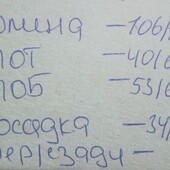 омина – 106/
лот – 40/6
лоб – 53/6
осадка – 34/
ер/сзади –